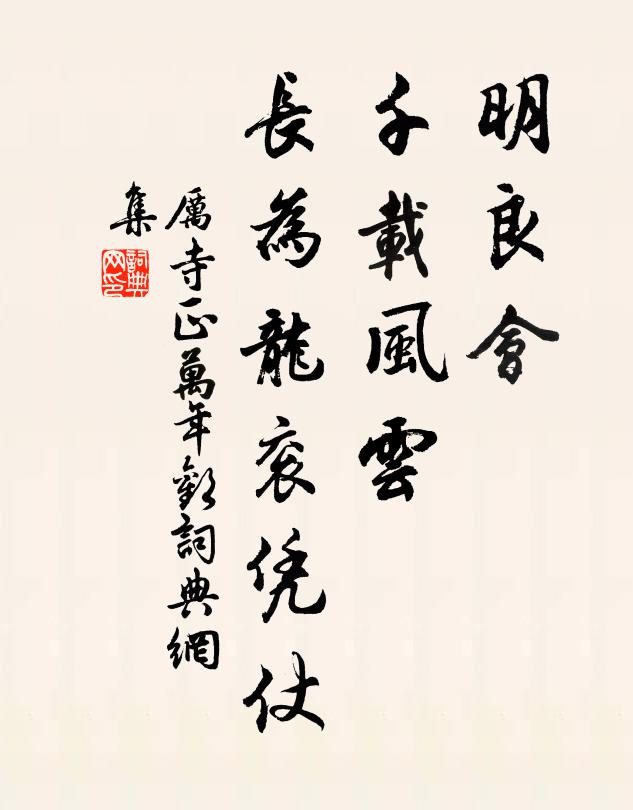 明良會
千載風雲
長為龍衮凭仗
厲寺正萬年歡詞典網
集
詞典
网印